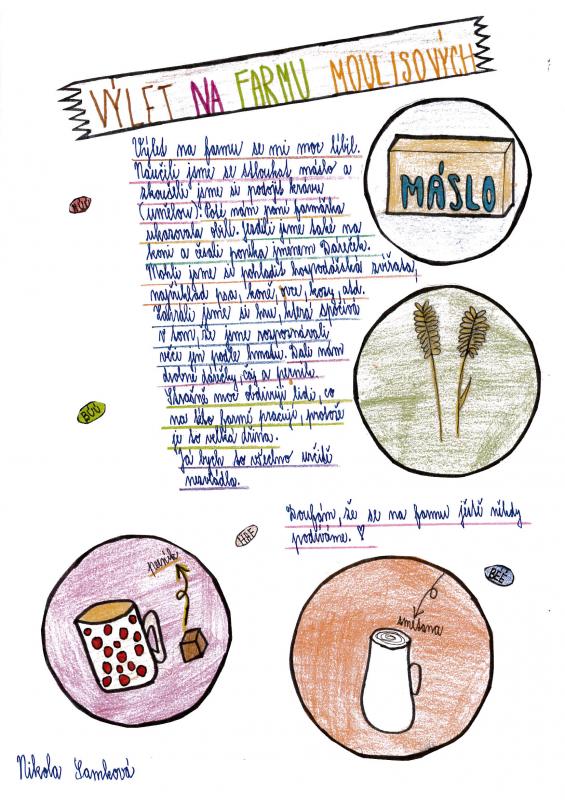 VÝLET NA FARMU MOULISOVÝCH
Výlet na farmu se mi moc líbil.
Naučili jsme se stloukat máslo a
zkoušeli jsme si podojit krávu
(umělou). Poté nám paní farmářka
ukazovala obilí. Jezdili jsme také na
koni a česali poníka jménem Dareček.
Mohli jsme si pohladit hospodářská zvířata,
například psa, koně, ovce, kozy, atd.
Zahráli jsme si hru, která spočívá
v tom, že jsme rozpoznávali
věci jen podle hmatu. Dali nám
drobné dárečky, čaj a perník.
Strašně moc obdivuji lidi, co
na této farmě pracují, protože
je to velká dřina.
Já bych to všechno určitě
nezvládla.
Doufám, že se na farmu ještě někdy
podíváme. ♡
MÁSLO
BÚÚ
HAF
BÉÉ
perník
smetana
Nikola Samková